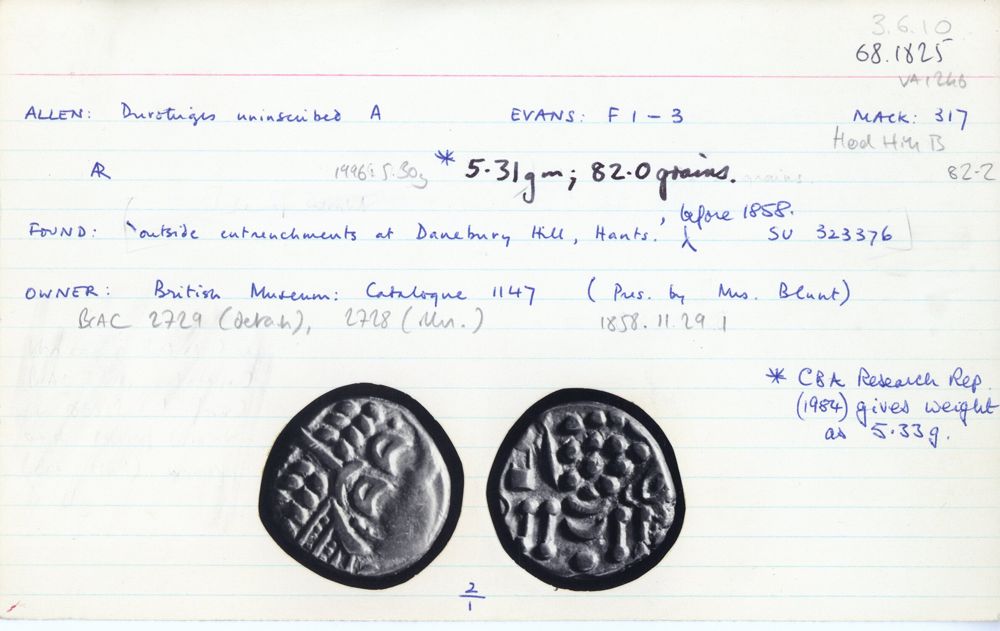 3.6.10
68.1825
VA1246
ALLEN: Durotriges uninscribed A EVANS: F 1 - 3 MACK: 317
Hod Hill B
AR 1996: 5.30g * 5.31gm; 82.0 grains. grains. 82.2
FOUND: 'outside entrenchments at Danebury Hill, Hants.', before 1858. SU 323376
OWNER: British Museum: Catalogue 1147 (Pres. by Mrs. Blunt)
BAC 2729 (details), 2728 (illn.) 1858.11.29.1
* CBA Research Rep.
(1984) gives weight
as 5.33g.
2/1